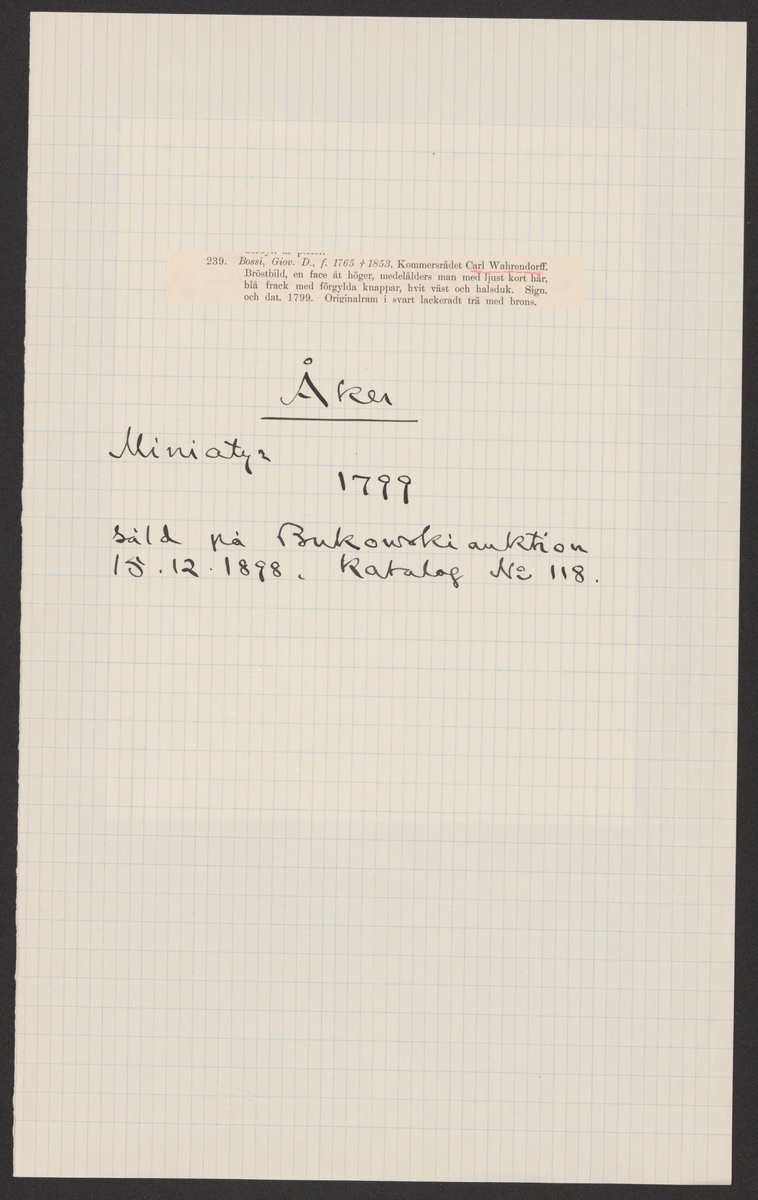 239. Bossi, Giov. D., f. 1765 † 1853. Kommersrådet Carl Wahrendorff.
Bröstbild, en face åt höger, medelålders man med ljust kort hår,
blå frack med förgylda knappar, hvit väst och halsduk. Sign.
och dat. 1799. Originalram i svart lackeradt trä med brons.
Åker
Miniatyr
1799
såld på Bukowski auktion
15.12.1898. Katalog No 118.